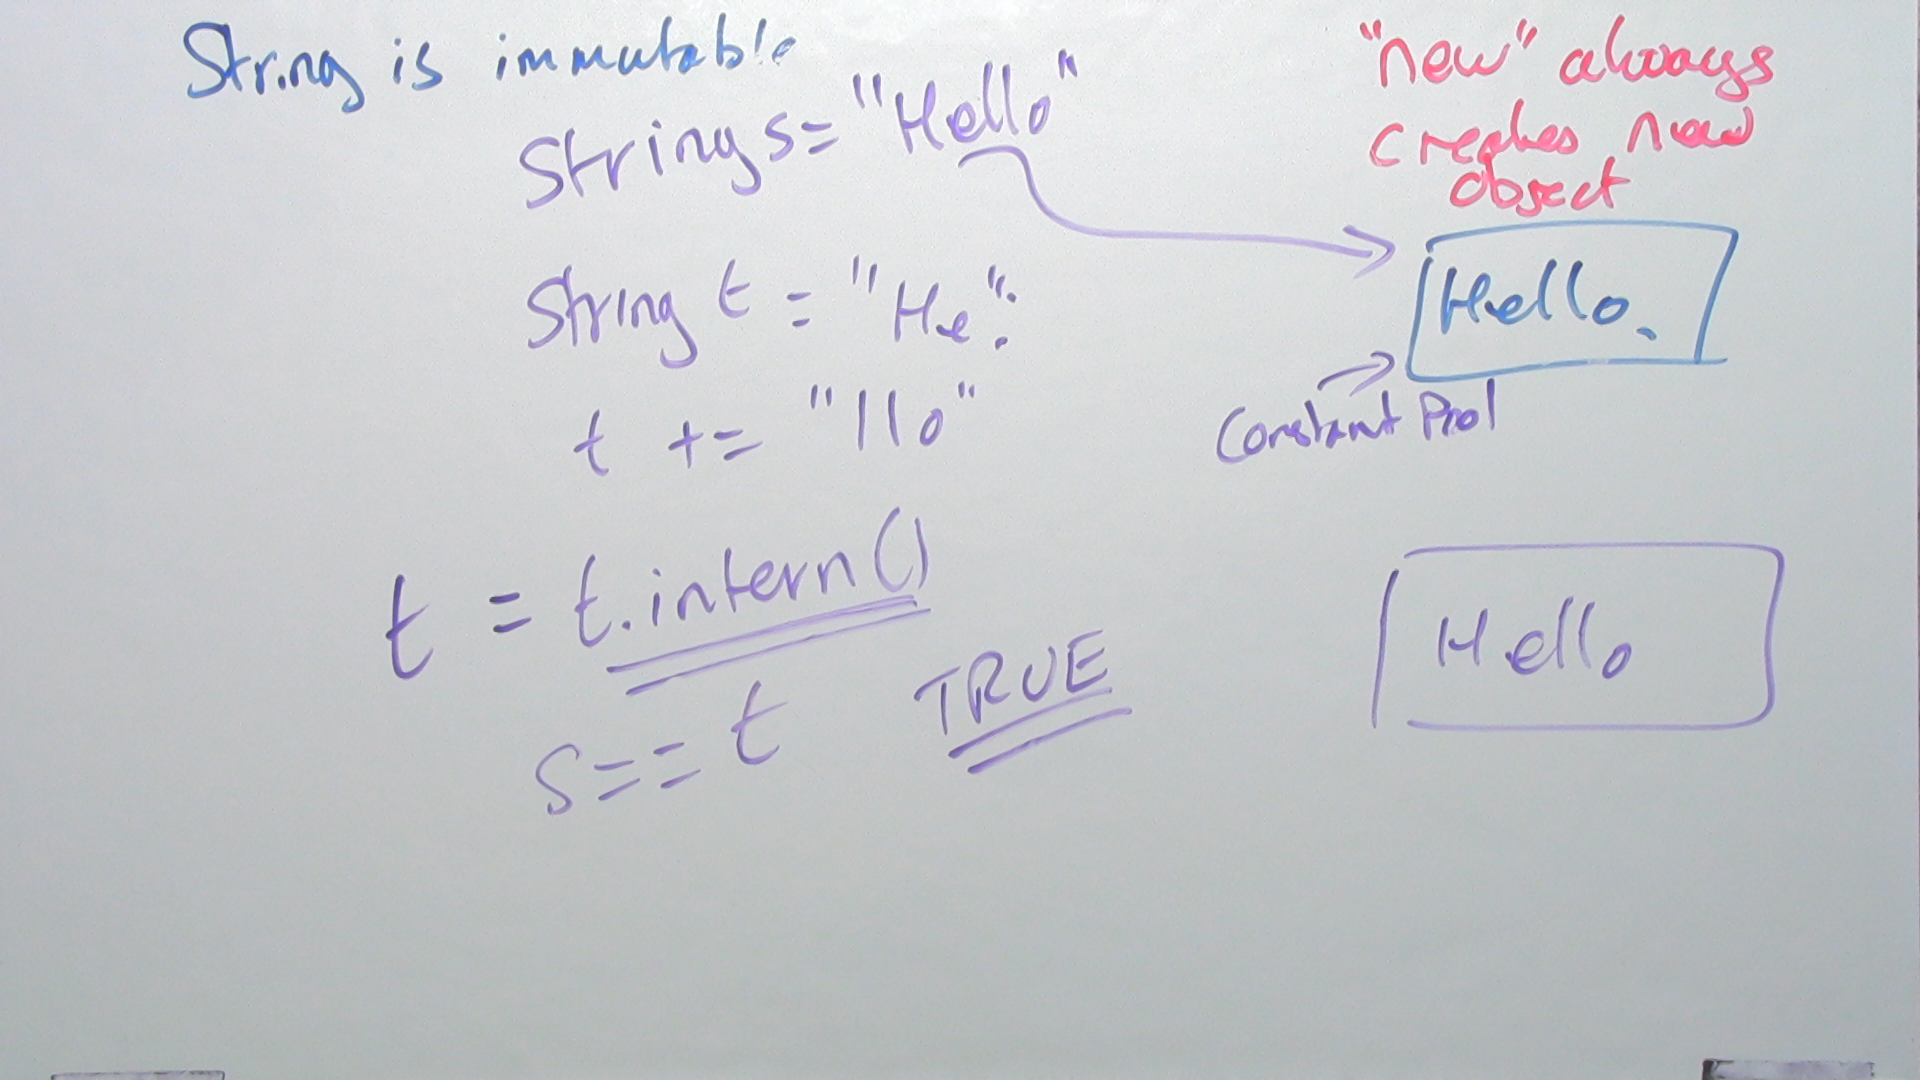 String is immutable
String s = "Hello"
String t = "He";
t += "llo"
t = t.intern()
s == t TRUE
"new" always
creates new
object
Hello
Constant Pool
Hello